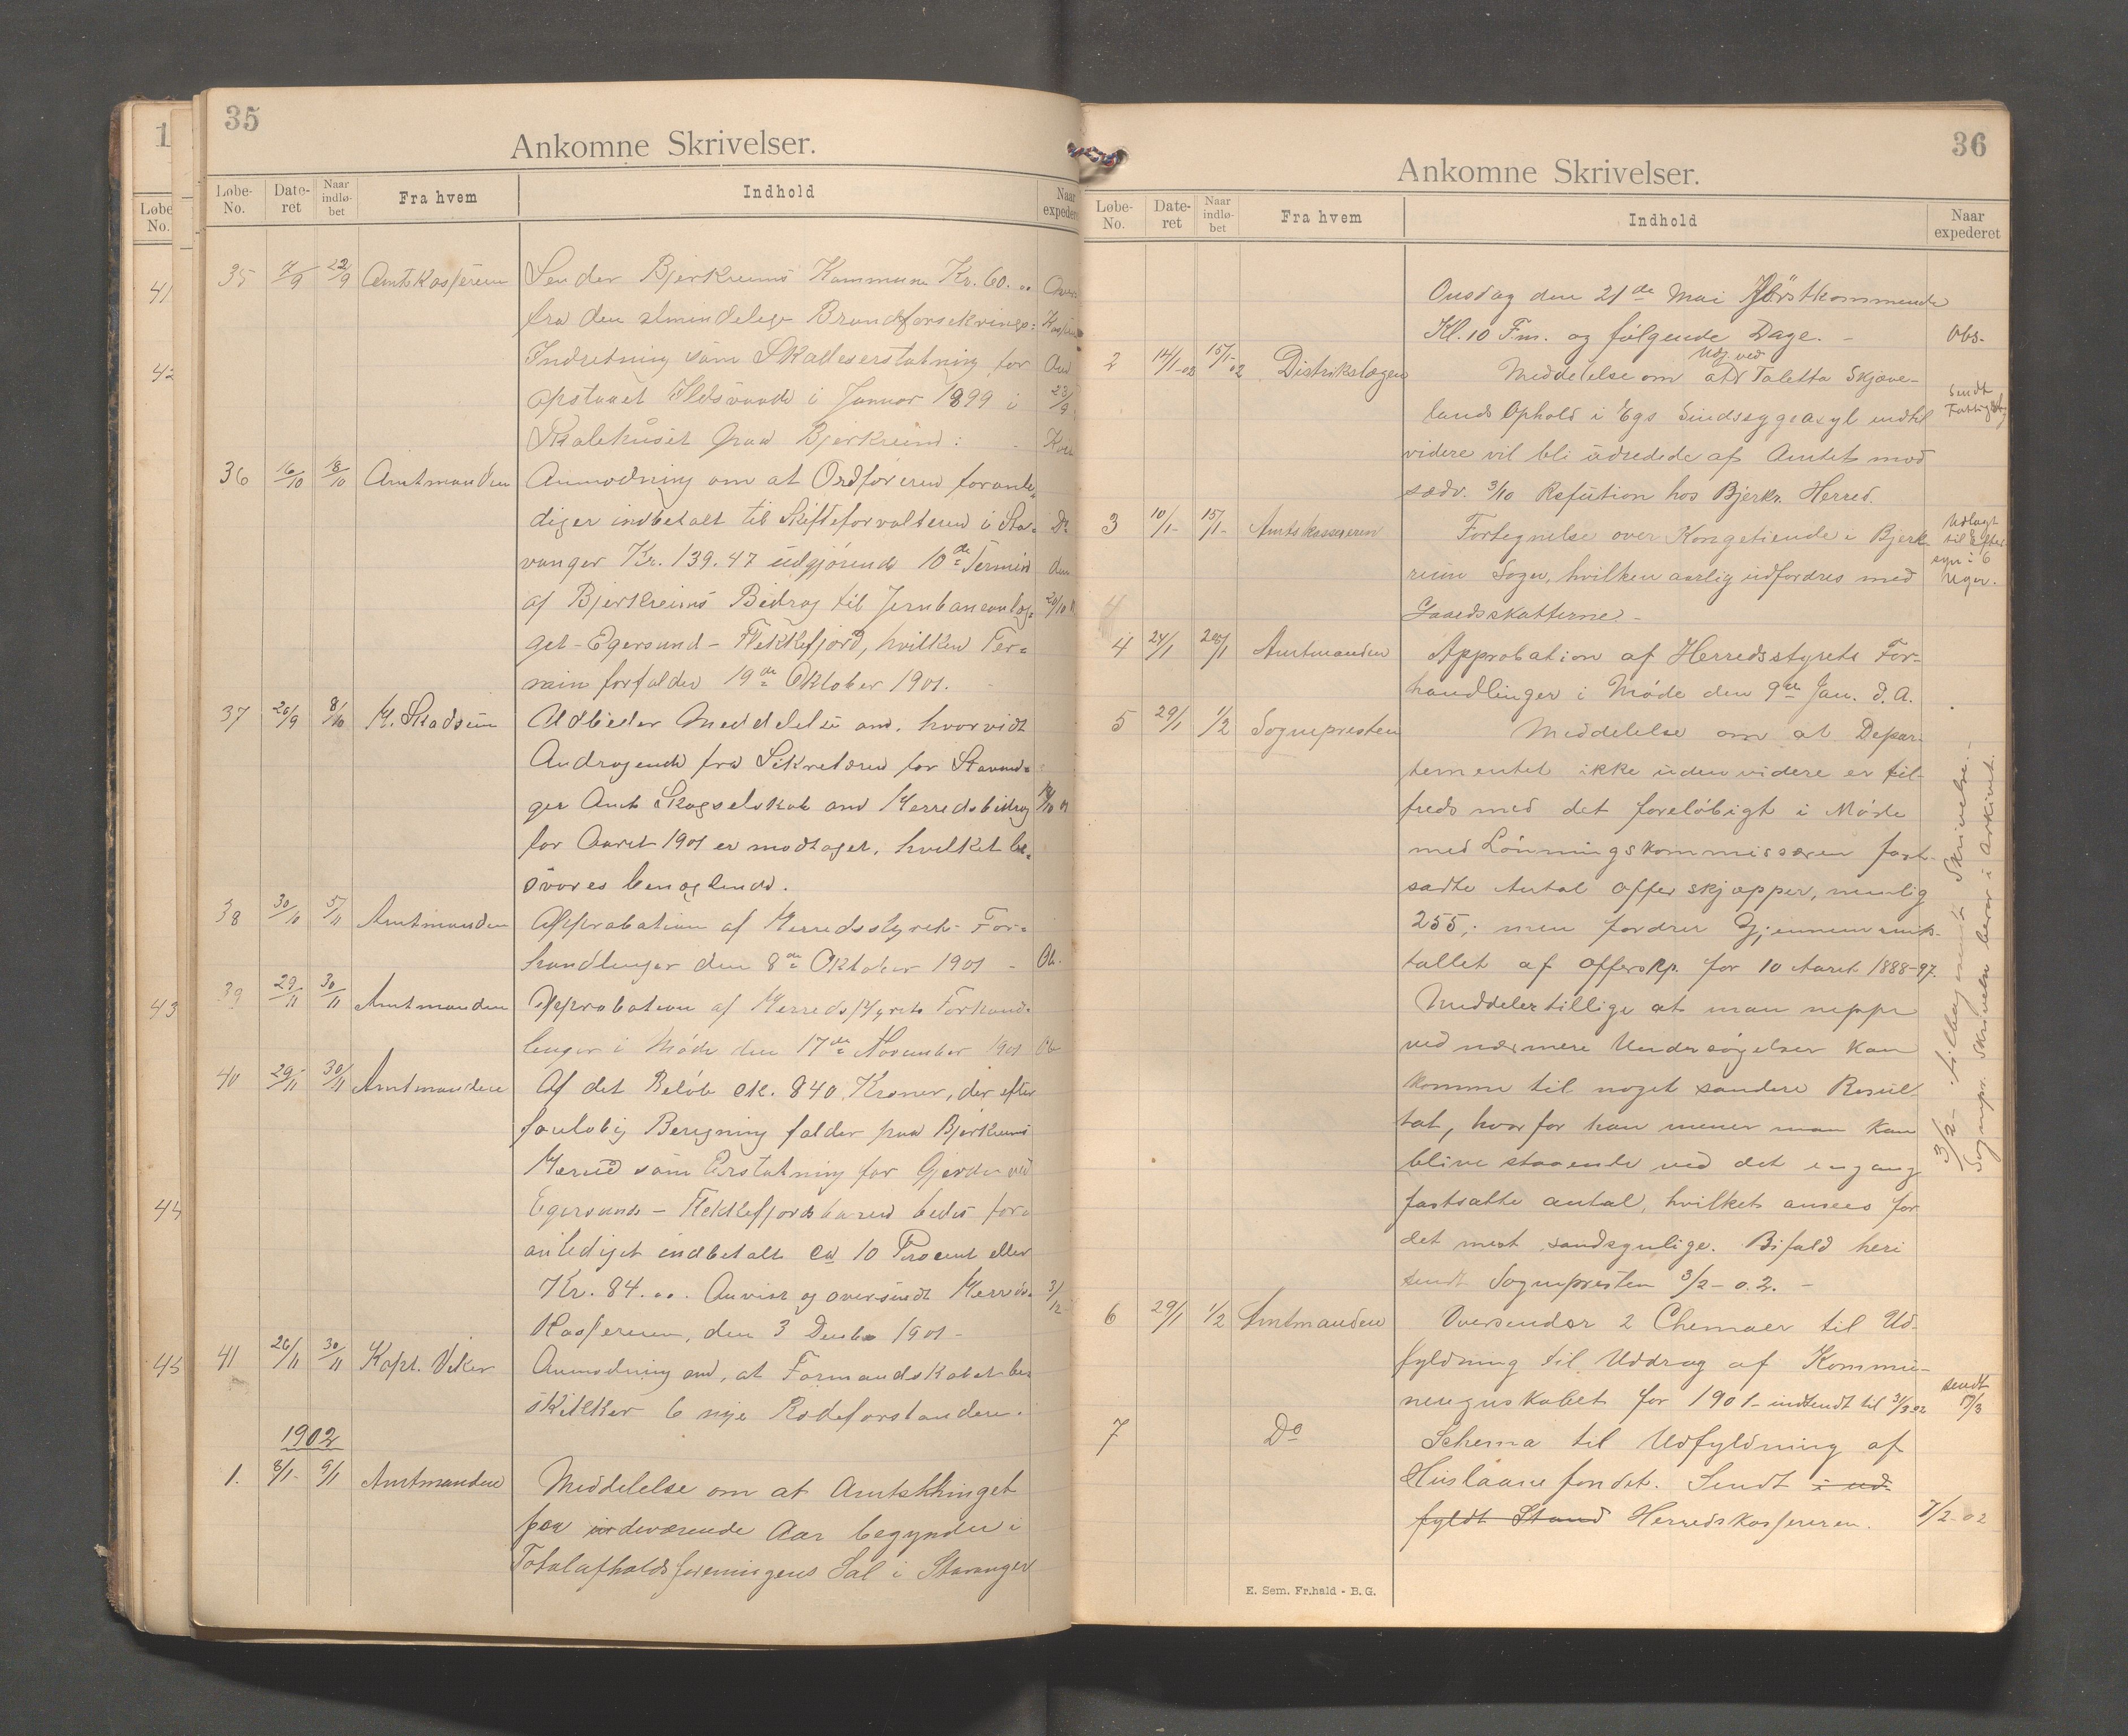 35
Ankomne Skrivelser.
Løbe-No. Date-ret Naar indlø-bet Fra hvem Indhold Naar expederet
35 7/9 22/9 Amtskasseren Sender Bjerkreims Kommune Kr. 60.00
fra den almindelige Brandforsekrings-
Indretning som Skadeserstatning for
opstaaet Ildsvaade i Januar 1899 i 23/9
Skolehuset paa Bjerkreim:
36 16/10 18/10 Amtmanden Anmodning om at Ordføreren foranle-
diger indbetalt til Skifteforvalteren i Sta-
vanger Kr. 139.47 udgjørende 10de Termin
af Bjerkreims Bidrag til Jernbaneanlæ-
get-Egersund-Flekkefjord, hvilken Ter-
min forfalder 19de Oktober 1901.
37 26/9 8/10 M. Skadsem Udbeder Meddelelse om, hvorvidt
Andragende fra Sekretæren for Stavan-
ger Amt Skogselskab om Herredsbidrag
for Aaret 1901 er modtaget, hvilket be-
svares benægtende.
38 30/10 5/11 Amtmanden Approbation af Herredsstyrets For-
handlinger den 8de Oktober 1901 -
39 29/11 30/11 Amtmanden Approbation af Herredsstyrets Forhand-
linger i Møde den 17de November 1901
40 29/11 30/11 Amtmanden Af det Beløb ck. 840 Kroner, der efter
foreløbig Beregning falder paa Bjerkreims
Herred som Erstatning for Gjerder ved
Egersunds-Flekkefjordsbanen bedes for-
anlediget indbetalt ca 10 Procent eller
Kr. 84.00. Anvist og oversendt Herreds- 3/12
Kasseren, den 3 Decbr 1901 -
41 26/11 30/11 Kapt. Veker Anmodning om, at Formandskabet be-
skikker 6 nye Rodeforstandere.
1902
1. 8/1- 9/1 Amtmanden Meddelelse om at Amtsthinget
paa indeværende Aar begynder i
Totalafholdsforeningens Sal i Stavanger
41
42
43
44
45
36
Ankomne Skrivelser.
Løbe-No. Date-ret Naar indlø-bet Fra hvem Indhold Naar expederet
Onsdag den 21de Mai Førstkommende
Kl. 10 Fm. og følgende Dage. - Obs.
Udg. ved
2 14/1-02 15/1-02 Distrikslægen Meddelelse om at Taletta Skjæve-
lands Ophold i Egs Sindssygeasyl indtil Sendt Fattigst.
videre vil bli udredede af Amtet mod
sædv. 3/10 Refution hos Bjerkr. Herred.
3 10/1- 15/1- Amtskasseren Fortegnelse over Kongetiende i Bjerk- Udlagt til Efter
reim Sogn, hvilken aarlig udfordres med syn i 6 Uger.
Gaardsskatterne -
4 24/1 29/1 Amtmanden Approbation af Herredsstyrets For-
handlinger i Møde den 9de Jan. d. A.
5 29/1 1/2 Sognepresten Meddelelse om at Depar-
tementet ikke uden videre er til-
freds med det foreløbigt i Møde
med Lønningskommissæren fast-
satte Antal Offerskjæpper, nemlig
255; men fordrer Gjennemsnits-
tallet af Offerskp. for 10 Aaret 1888-97.
Meddeler tillige at man neppe
ved nærmere Undersøgelser kan
komme til noget sandere Resul-
tat, hvorfor han mener man kan
blive staaende ved det engang
fastsatte antal, hvilket ansees for
det mest sandsynlige. Bifald heri
sendt Sognepresten 3/2-02. -
3/2- tilbagesendt Skrivelse. -
Sognepr. Skrivelse beror i Arkivet.
6 29/1 1/2 Amtmanden Oversender 2 Chemaer til Ud-
fyldning til Uddrag af Kommu-
neregnskabet for 1901- indsendt til 31/3 02 sendt 17/3
7 Do Schema til Udfyldning af
Huslaanefondet. Sendt i ud-
fyldt Stand Herredskasseren. 7/2-02
E. Sem. Fr.hald - B. G.